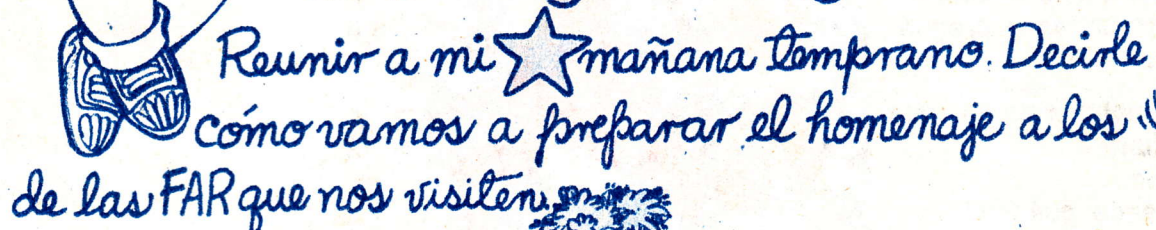 Reunir a mi mañana temprano. Decirle
cómo vamos a preparar el homenaje a los
de las FAR que nos visiten.